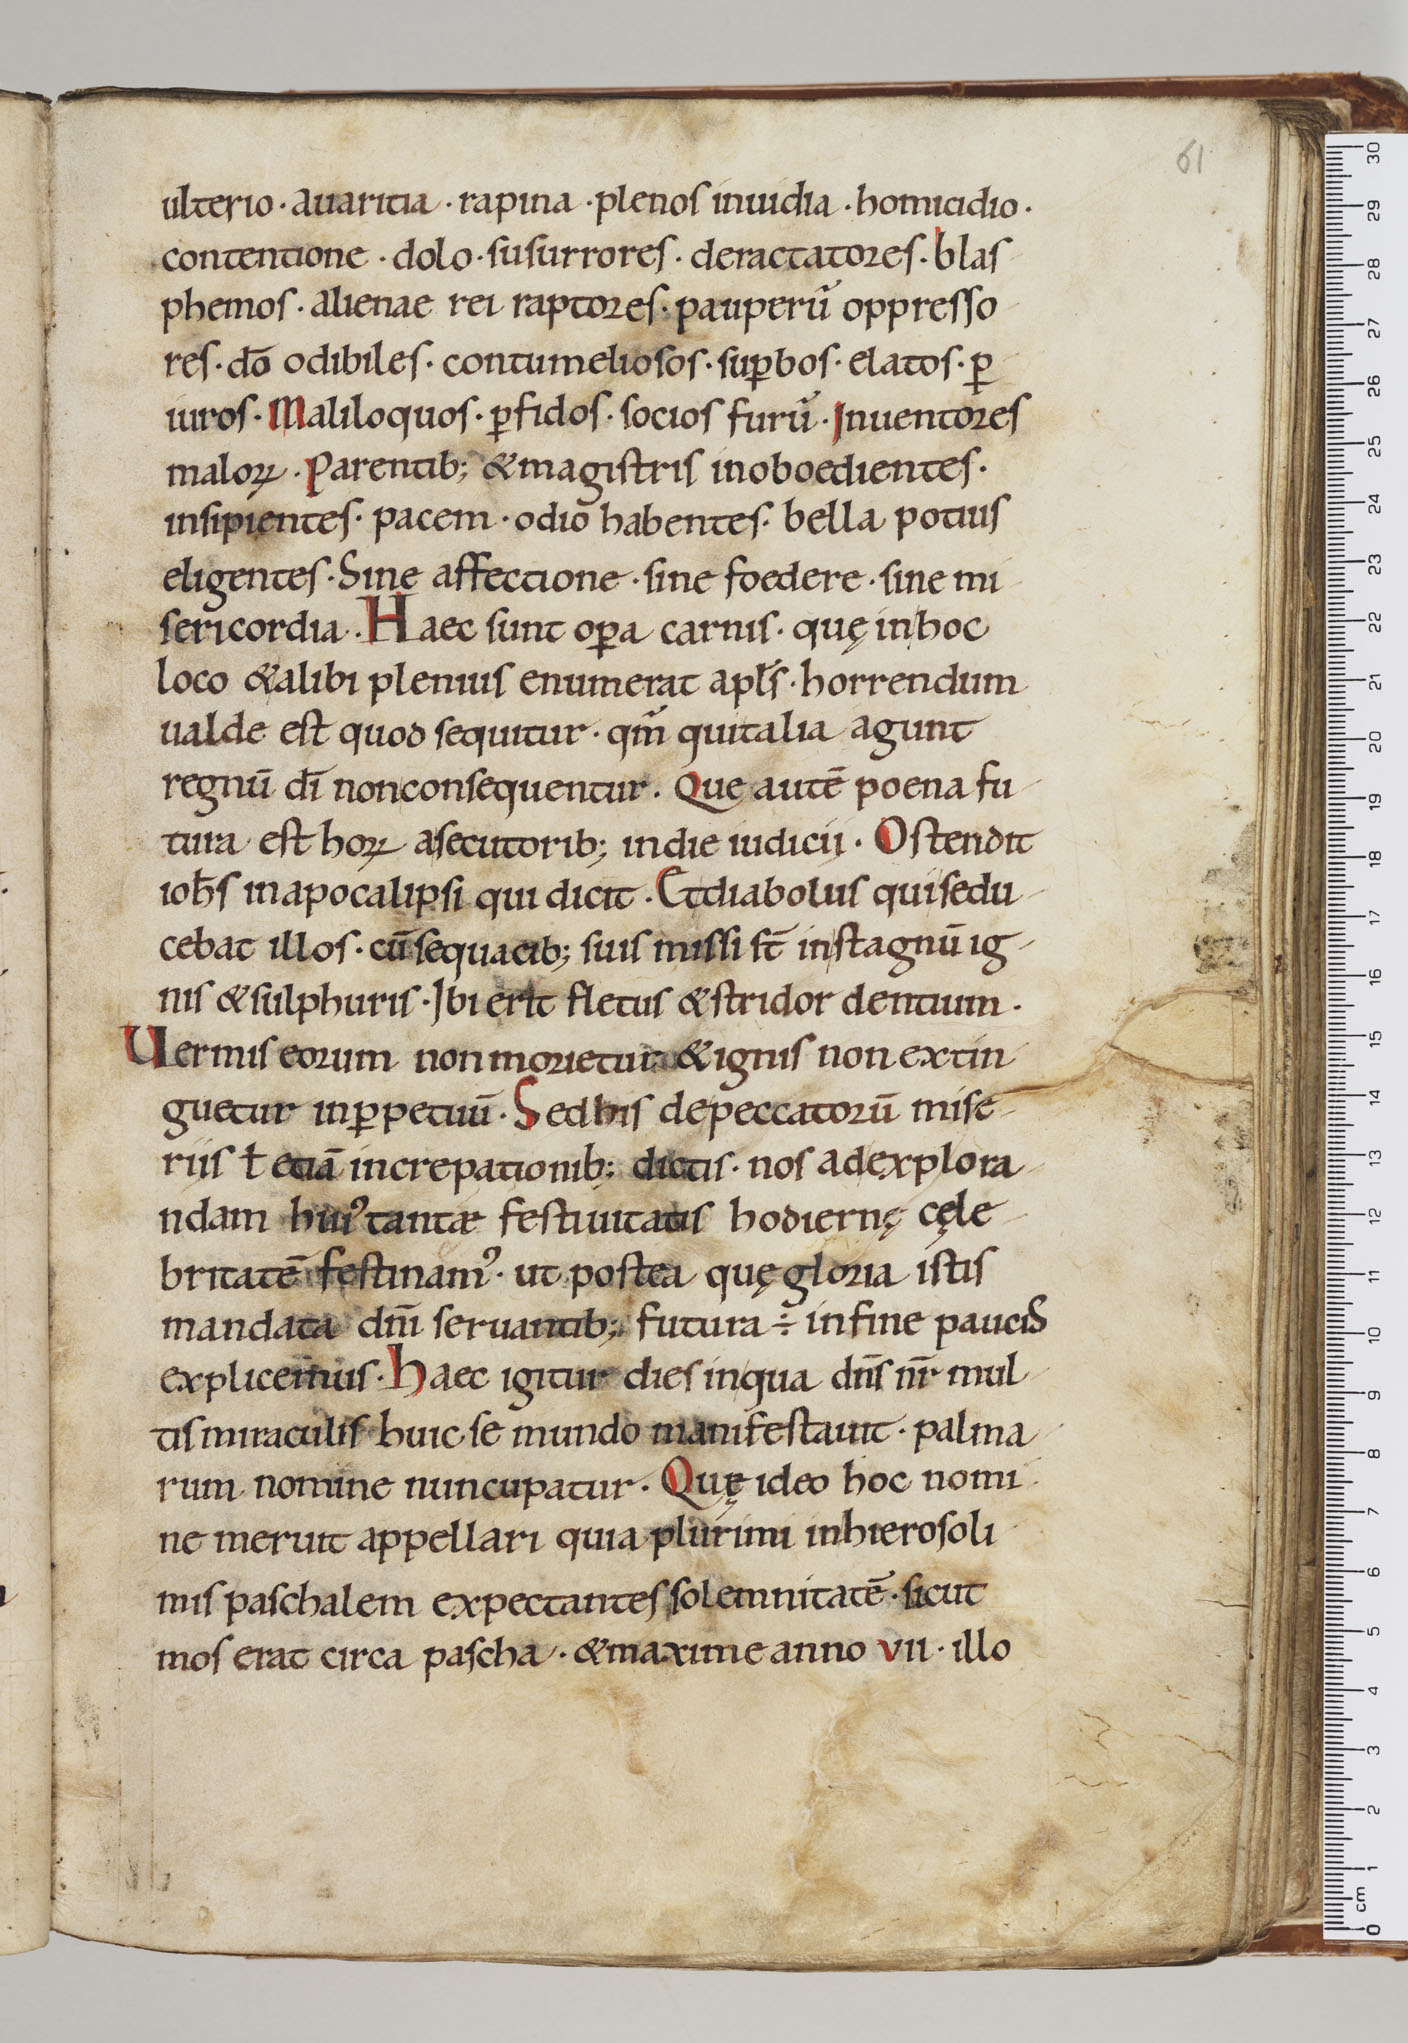 61
ulterio · auaritia · rapina · plenos inuidia · homicidio ·
contentione · dolo · susurrores · deractatores · blas
phemos · alienae rei raptores · pauperū oppresso
res · dō odibiles · contumeliosos · suꝑbos · elatos · ꝑ
iuros · Maliloquos · ꝑfidos · socios furū · Inuentores
maloꝝ · Parentib; &magistris inoboedientes ·
insipientes · pacem · odio habentes · bella potius
eligentes · Sine affectione · sine foedere · sine mi
sericordia · Haec sunt oꝑa carnis · quę inhoc
loco &alibi plenius enumerat apl̄s · horrendum
ualde est quod sequitur · qm̄ quitalia agunt
regnū dī nonconsequentur · Que autē poena fu
tura est hoꝝ asecutorib; indie iudicii · Ostendit
ioh̄s inapocalipsi qui dicit · Etdiabolus quisedu
cebat illos · cū sequacib; suis missi st̄ instagnū ig
nis &sulphuris · Ibi erit fletus &stridor dentium ·
Uermis eorum non morietur &ignis non extin
guetur inꝑpetuū · Sedhis depeccatorū mise
riis ł etiā increpationib; dictis · nos adexplora
ndam hui᾽ tantæ festiuitatis hodiernę cęle
britatē festinam᾽ · ut postea quę gloria istis
mandata dn̄i seruantib; futura ÷ infine paucis
explicemus · Haec igitur dies inqua dn̄s nr̄ mul
tis miraculis huic se mundo manifestauit · palma
rum nomine nuncupatur · Quę ideo hoc nomi
ne meruit appellari quia plurimi inhierosoli
mis paschalem expectantes solemnitatē · sicut
mos erat circa pascha · &maxime anno vii · illo
30
29
28
27
26
25
24
23
22
21
20
19
18
17
16
15
14
13
12
11
10
9
8
7
6
5
4
3
2
1
cm
0